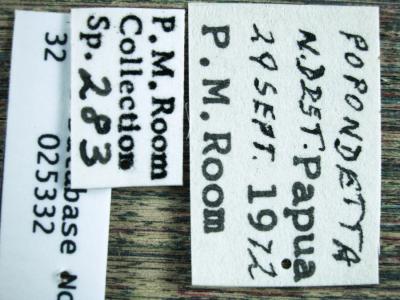 POPONDETTA
N.DIST. Papua
24 SEPT. 1972
P. M. Room
P. M. Room
Collection
Sp. 283
Database No
32 025332